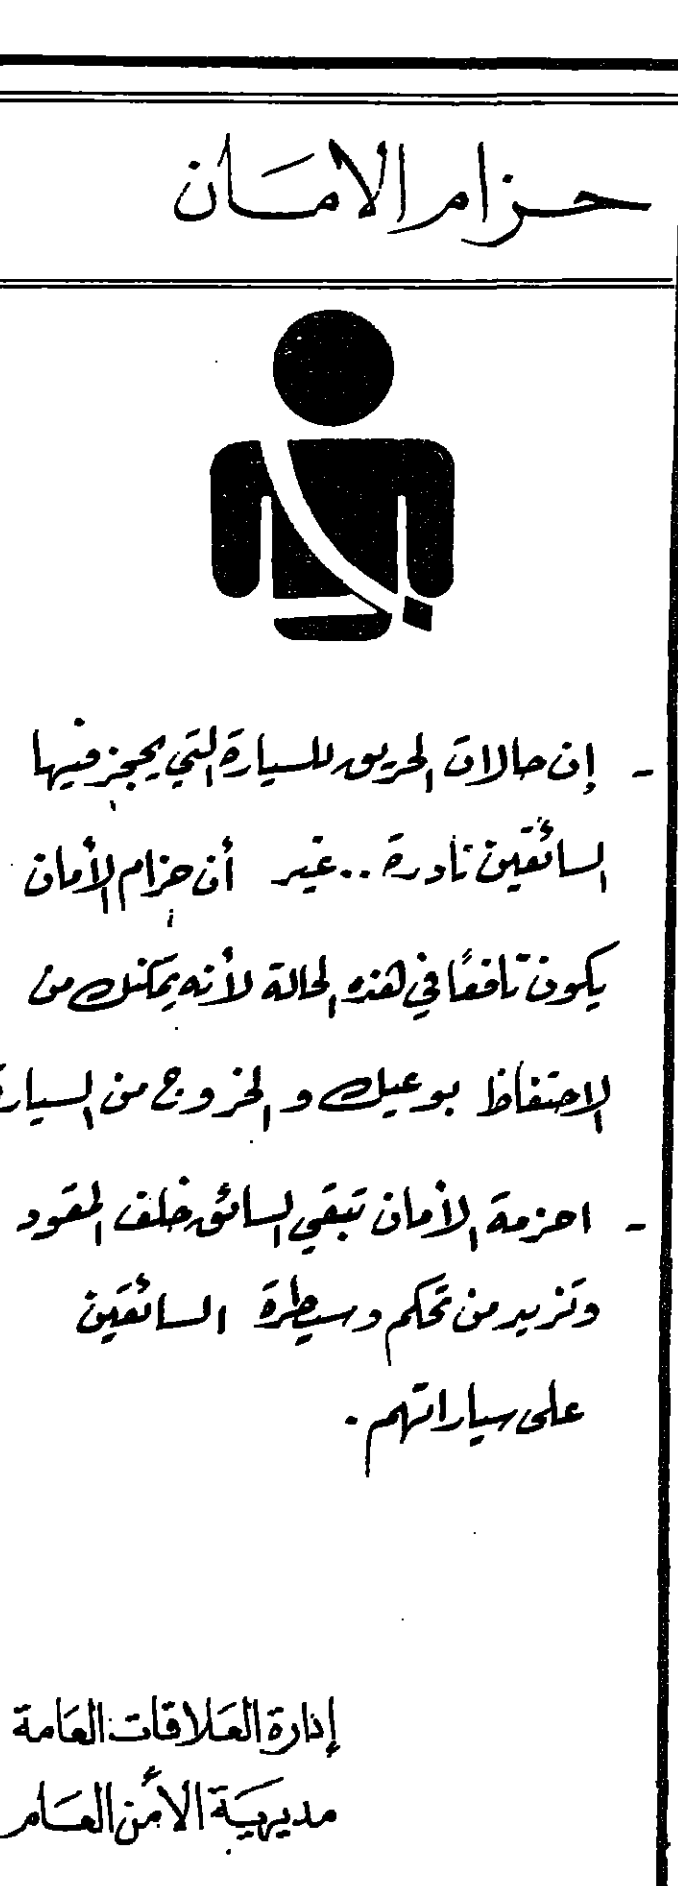 حزام الامان
- إن حالات الحريق للسيارة التي يحجز فيها
السائقين نادرة .. غير أن حزام الأمان
يكون نافعًا في هذه الحالة لأنه يمكنك من
الاحتفاظ بوعيك و الخروج من السيارة
- احزمة الأمان تبقي السائق خلف المقود
وتزيد من تحكم وسيطرة السائقين
على سياراتهم .
إدارة العلاقات العامة
مديرية الأمن العام